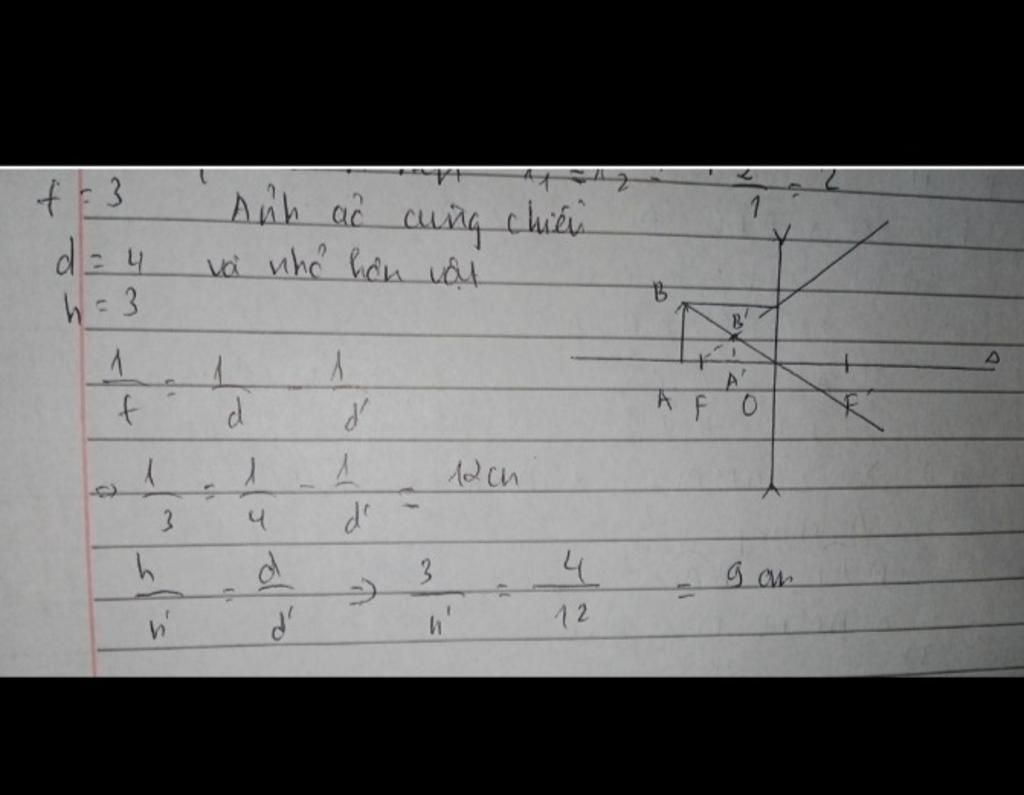 f = 3
Ảnh ảo cùng chiều
d = 4 và nhỏ hơn vật
h = 3
1/f = 1/d - 1/d'
⇒ 1/3 = 1/4 - 1/d' = 12cm
h/h' = d/d' ⇒ 3/h' = 4/12 = 9 cm
B
B'
Δ
A'
A F O F'